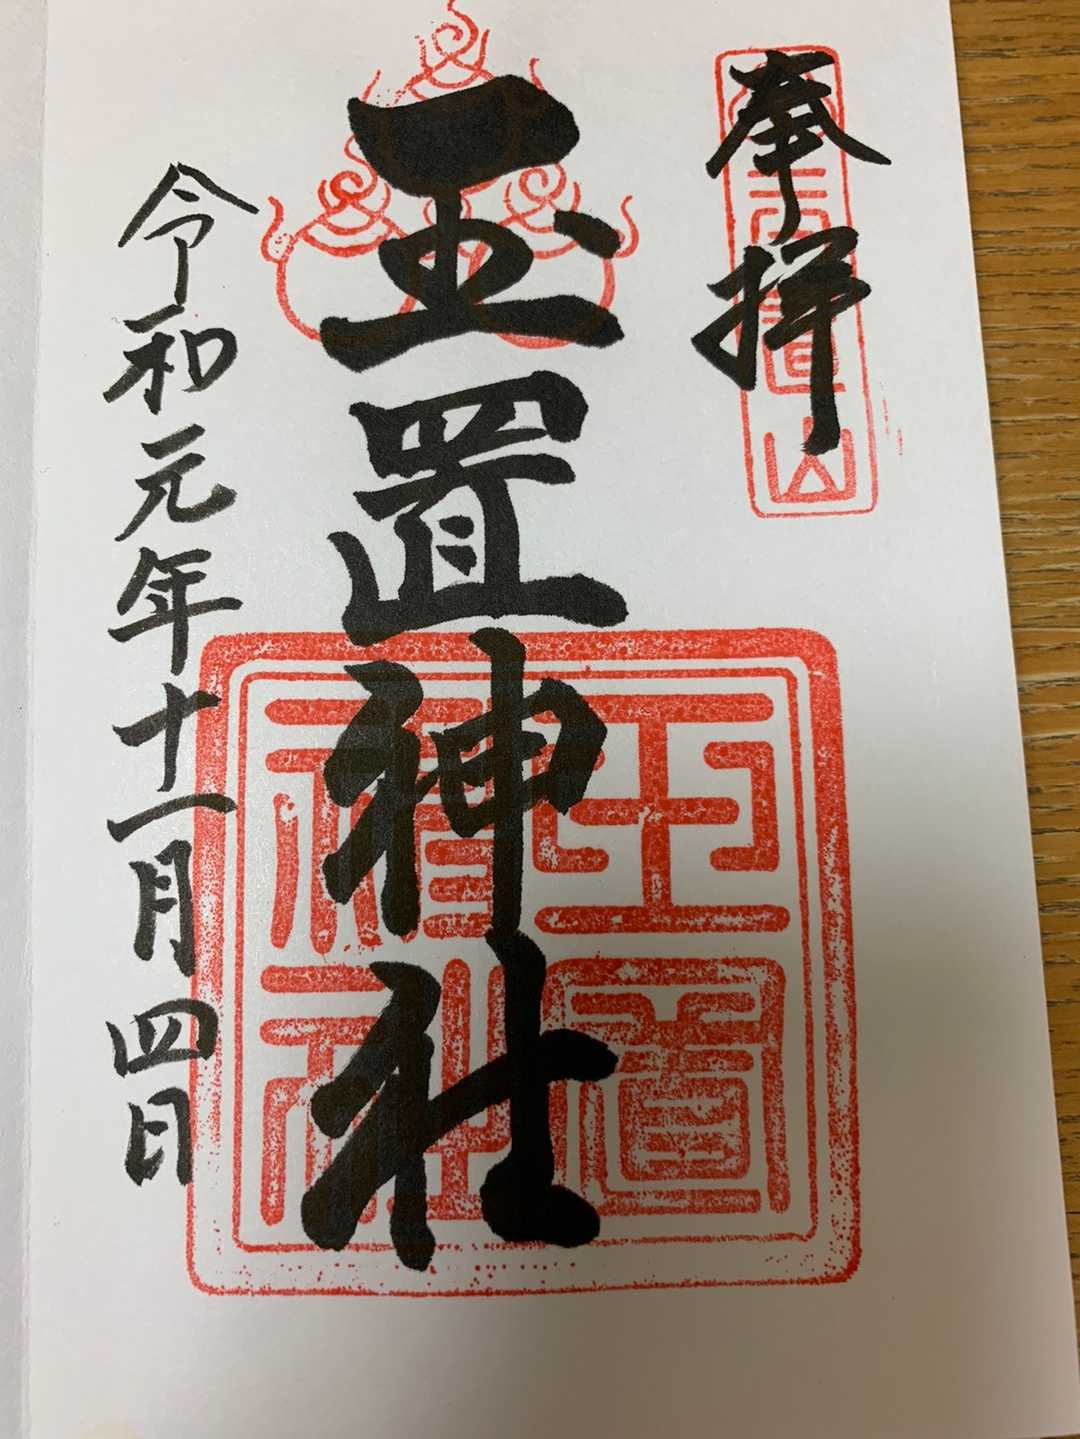 奉拝
玉置神社
令和元年十一月四日
玉置神社